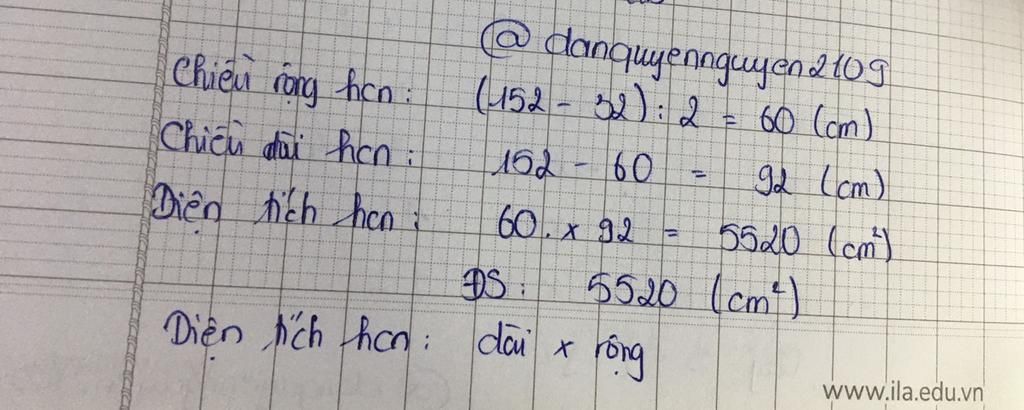 @ danquyennguyen2109
Chiều rộng hcn: (152 - 32) : 2 = 60 (cm)
Chiều dài hcn: 152 - 60 = 92 (cm)
Diện tích hcn: 60 . x 92 = 5520 (cm²)
ĐS: 5520 (cm²)
Diện tích hcn: dài x rộng
www.ila.edu.vn